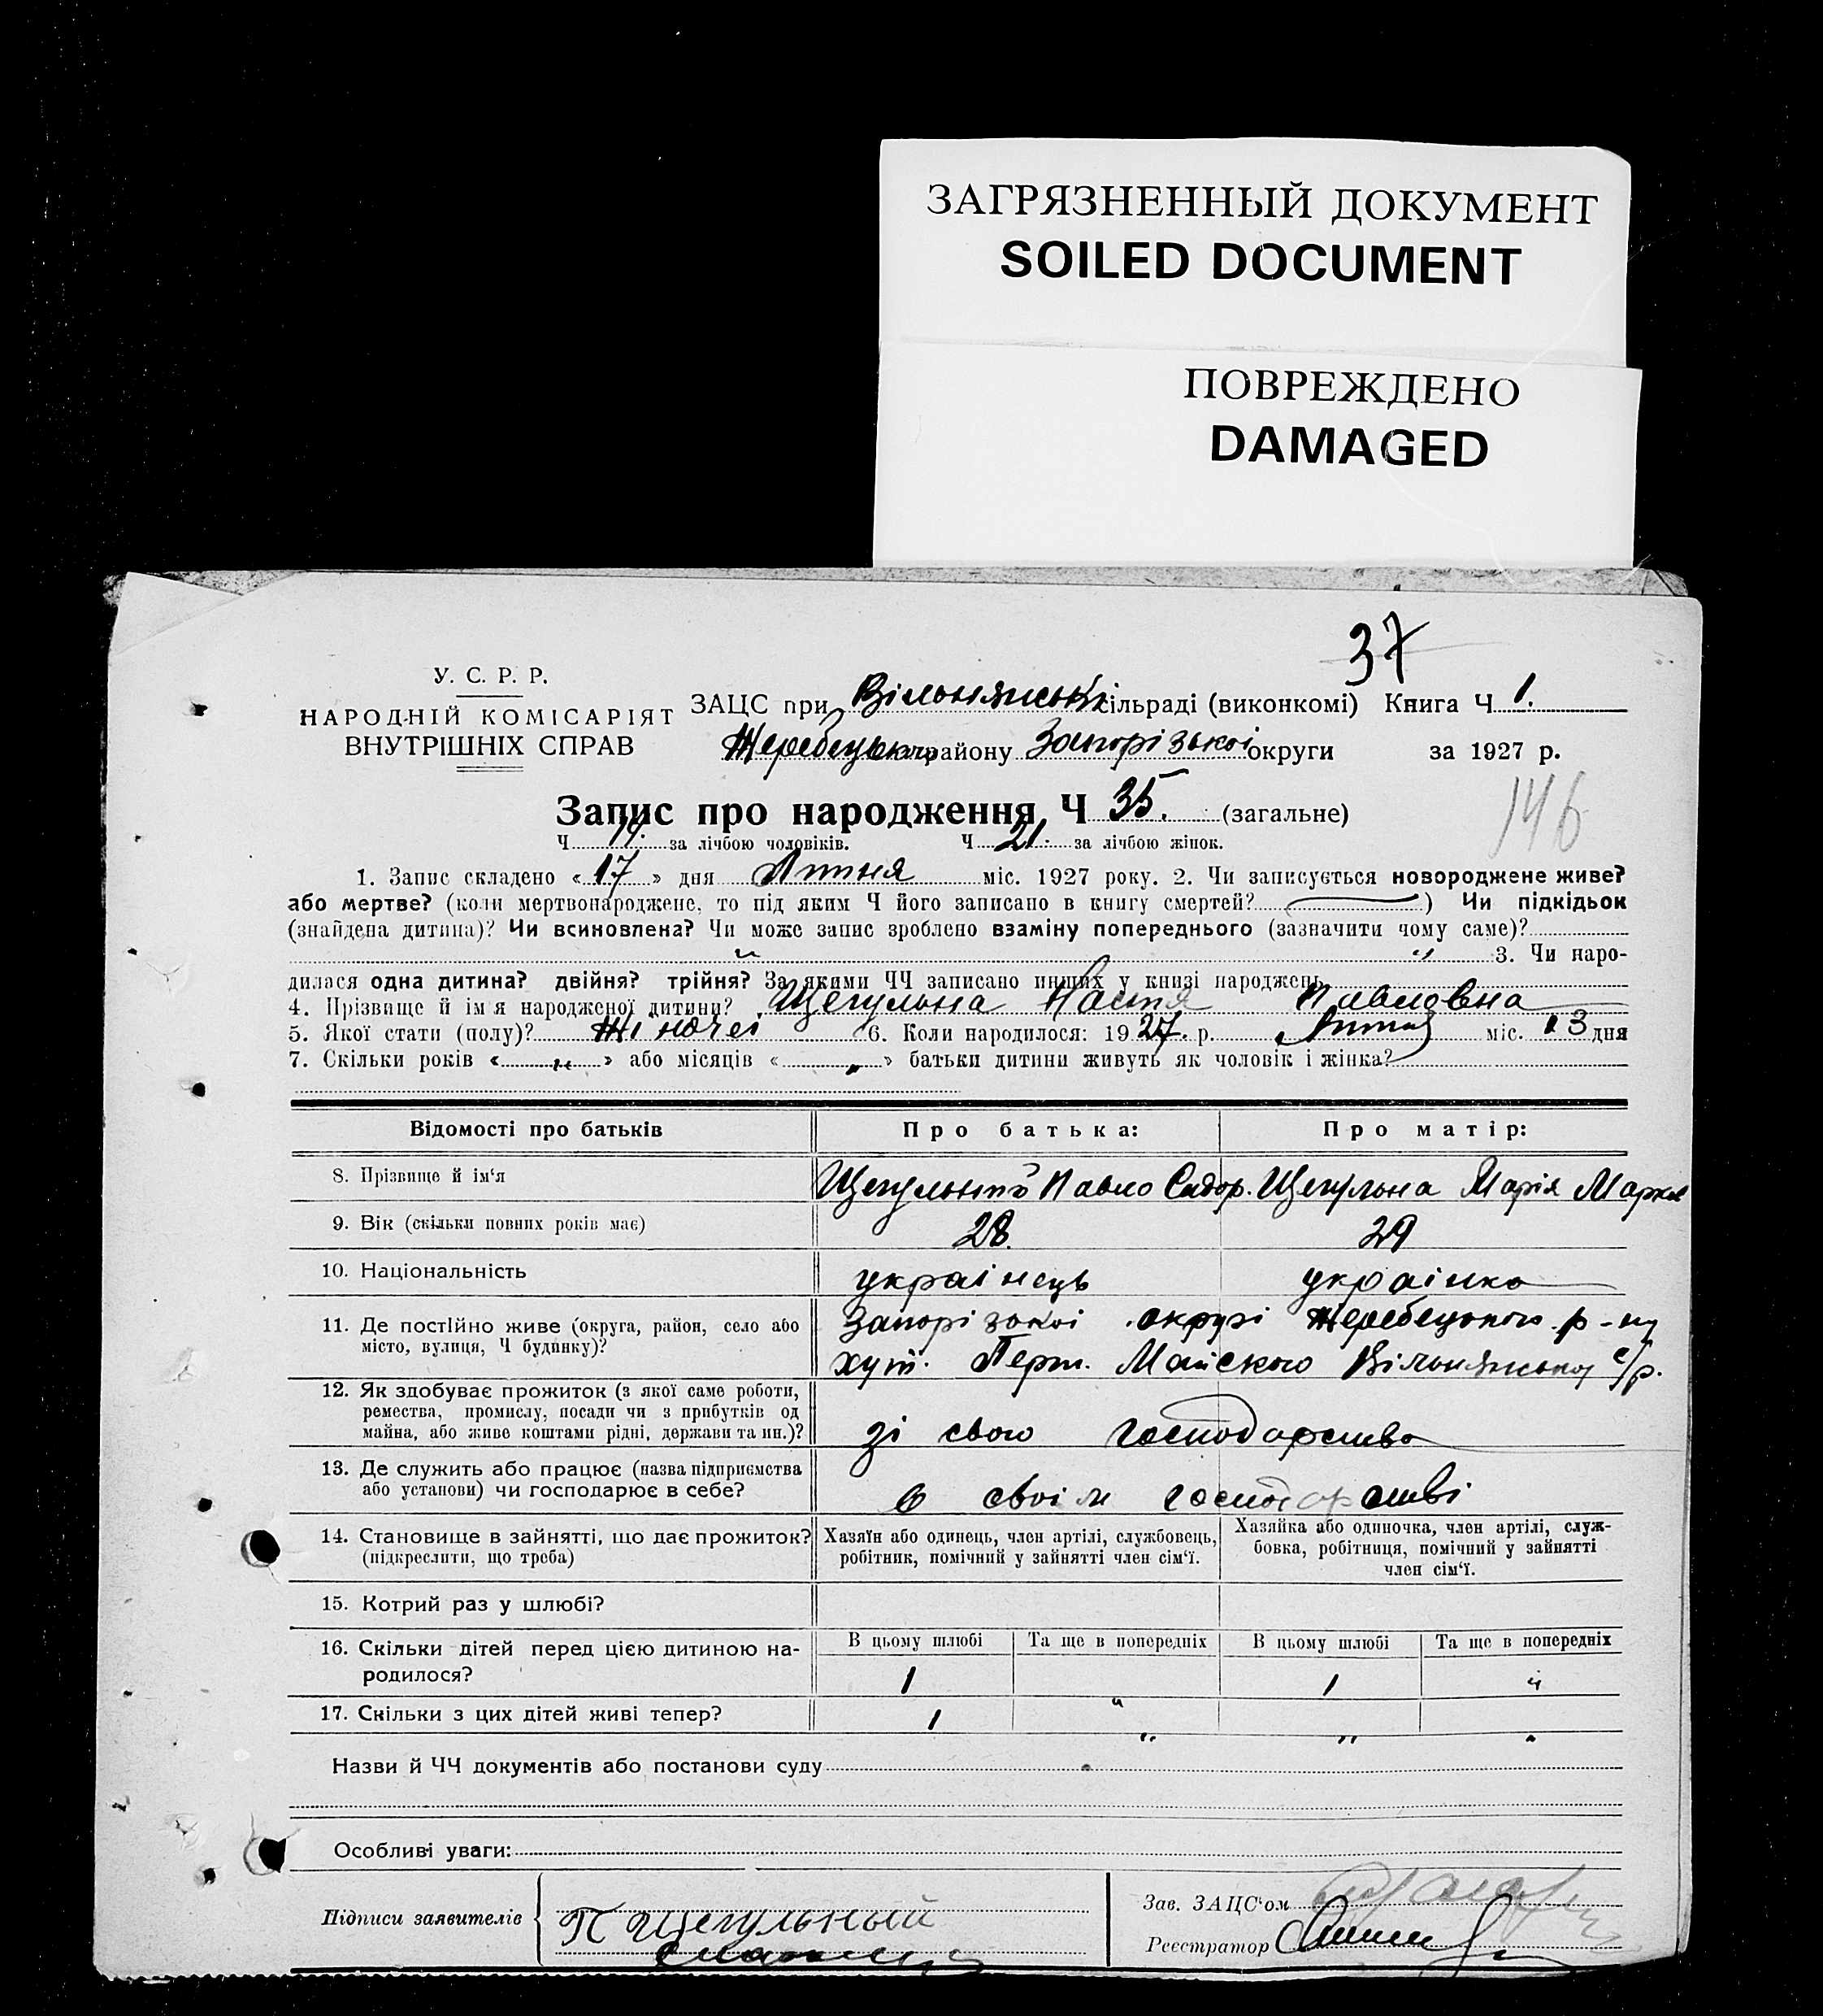 ЗАГРЯЗНЕННЫЙ ДОКУМЕНТ
SOILED DOCUMENT
ПОВРЕЖДЕНО
DAMAGED
37
У. С. Р. Р.
НАРОДНІЙ КОМІСАРІЯТ
ВНУТРІШНІХ СПРАВ
ЗАЦС при Вільнянські сільраді (виконкомі) Книга Ч 1.
Жеребецького району Запорізькоі округи за 1927 р.
Запис про народження Ч 35. (загальне)
146
Ч 14. за лічбою чоловіків. Ч 21. за лічбою жінок.
1. Запис складено « 17 » дня Липня міс. 1927 року. 2. Чи записується новороджене живе?
або мертве? (коли мертвонароджене, то під яким Ч його записано в книгу смертей? ) Чи підкідьок
(знайдена дитина)? Чи всиновлена? Чи може запис зроблено взаміну попереднього (зазначити чому саме)?
" " 3. Чи наро-
дилася одна дитина? двійня? трійня? За якими ЧЧ записано инших у книзі народжень
4. Прізвище й ім'я народженої дитини? Щегульна Настя Павловна
5. Якої стати (полу)? Жіночеі 6. Коли народилося: 1927. р. Липня міс. 13 дня
7. Скільки років « " » або місяців « » батьки дитини живуть як чоловік і жінка?
Відомості про батьків Про батька: Про матір:
8. Прізвище й ім'я Щегульний Павло Сидор. Щегульна Марія Марков
9. Вік (скільки повних років має) 28. 29
10. Національність украінець украінка
11. Де постійно живе (округа, район, село або Запорізькоі округі Жеребецького р-ну
місто, вулиця, Ч будинку)? хут. Перш. Майского Вільнянськоі с/р.
12. Як здобуває прожиток (з якої саме роботи,
ремества, промислу, посади чи з прибутків од
майна, або живе коштами рідні, держави та ин.)? зі свого господарства
13. Де служить або працює (назва підприємства
або установи) чи господарює в себе? в своім господарстві
14. Становище в зайнятті, що дає прожиток? Хазяїн або одинець, член артілі, службовець, Хазяйка або одиночка, член артілі, служ-
(підкреслити, що треба) робітник, помічний у зайнятті член сім'ї. бовка, робітниця, помічний у зайнятті
член сім'ї.
15. Котрий раз у шлюбі?
16. Скільки дітей перед цією дитиною на- В цьому шлюбі Та ще в попередніх В цьому шлюбі Та ще в попередніх
родилося? 1 1 "
17. Скільки з цих дітей живі тепер? 1 "
" " "
Назви й ЧЧ документів або постанови суду
Особливі уваги:
Підписи заявителів П Щегульный
Зав. ЗАЦС'ом
Реєстратор